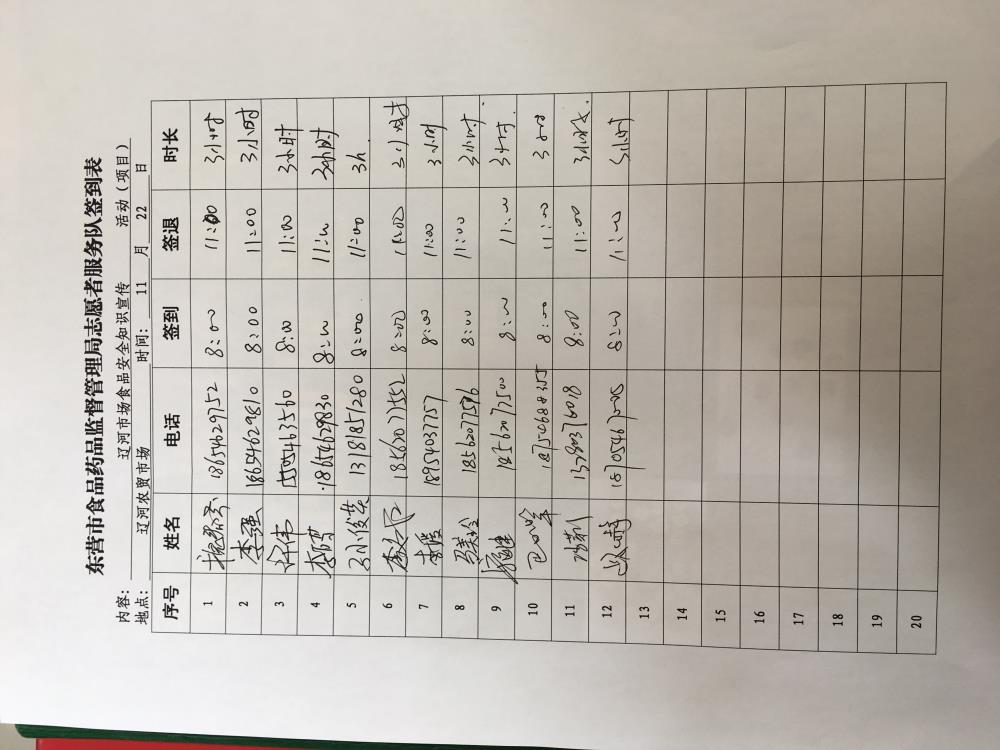 东营市食品药品监督管理局志愿者服务队签到表
内容: 辽河市场食品安全知识宣传 活动（项目）
地点: 辽河农贸市场 时间: 11 月 22 日
序号 姓名 电话 签到 签退 时长
1 18654629752 8:00 11:00 3小时
2 李强 18654629810 8:00 11:00 3小时
3 许伟 15505463560 8:00 11:00 3小时
4 18654629830 8:00 11:00 3小时
5 13181851280 8:00 11:00 3h.
6 18562077552 8:00 11:00 3小时
7 18954037757 8:00 11:00 3小时
8 18562077576 8:00 11:00 3小时
9 18562077500 8:00 11:00 3小时.
10 18754688355 8:00 11:00 3小时
11 8:00 11:00 3小时.
12 18705467005 8:00 11:00 3小时
13
14
15
16
17
18
19
20